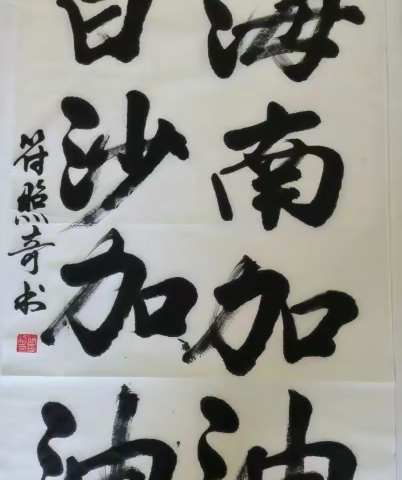 海南加油
白沙加油
符照奇书